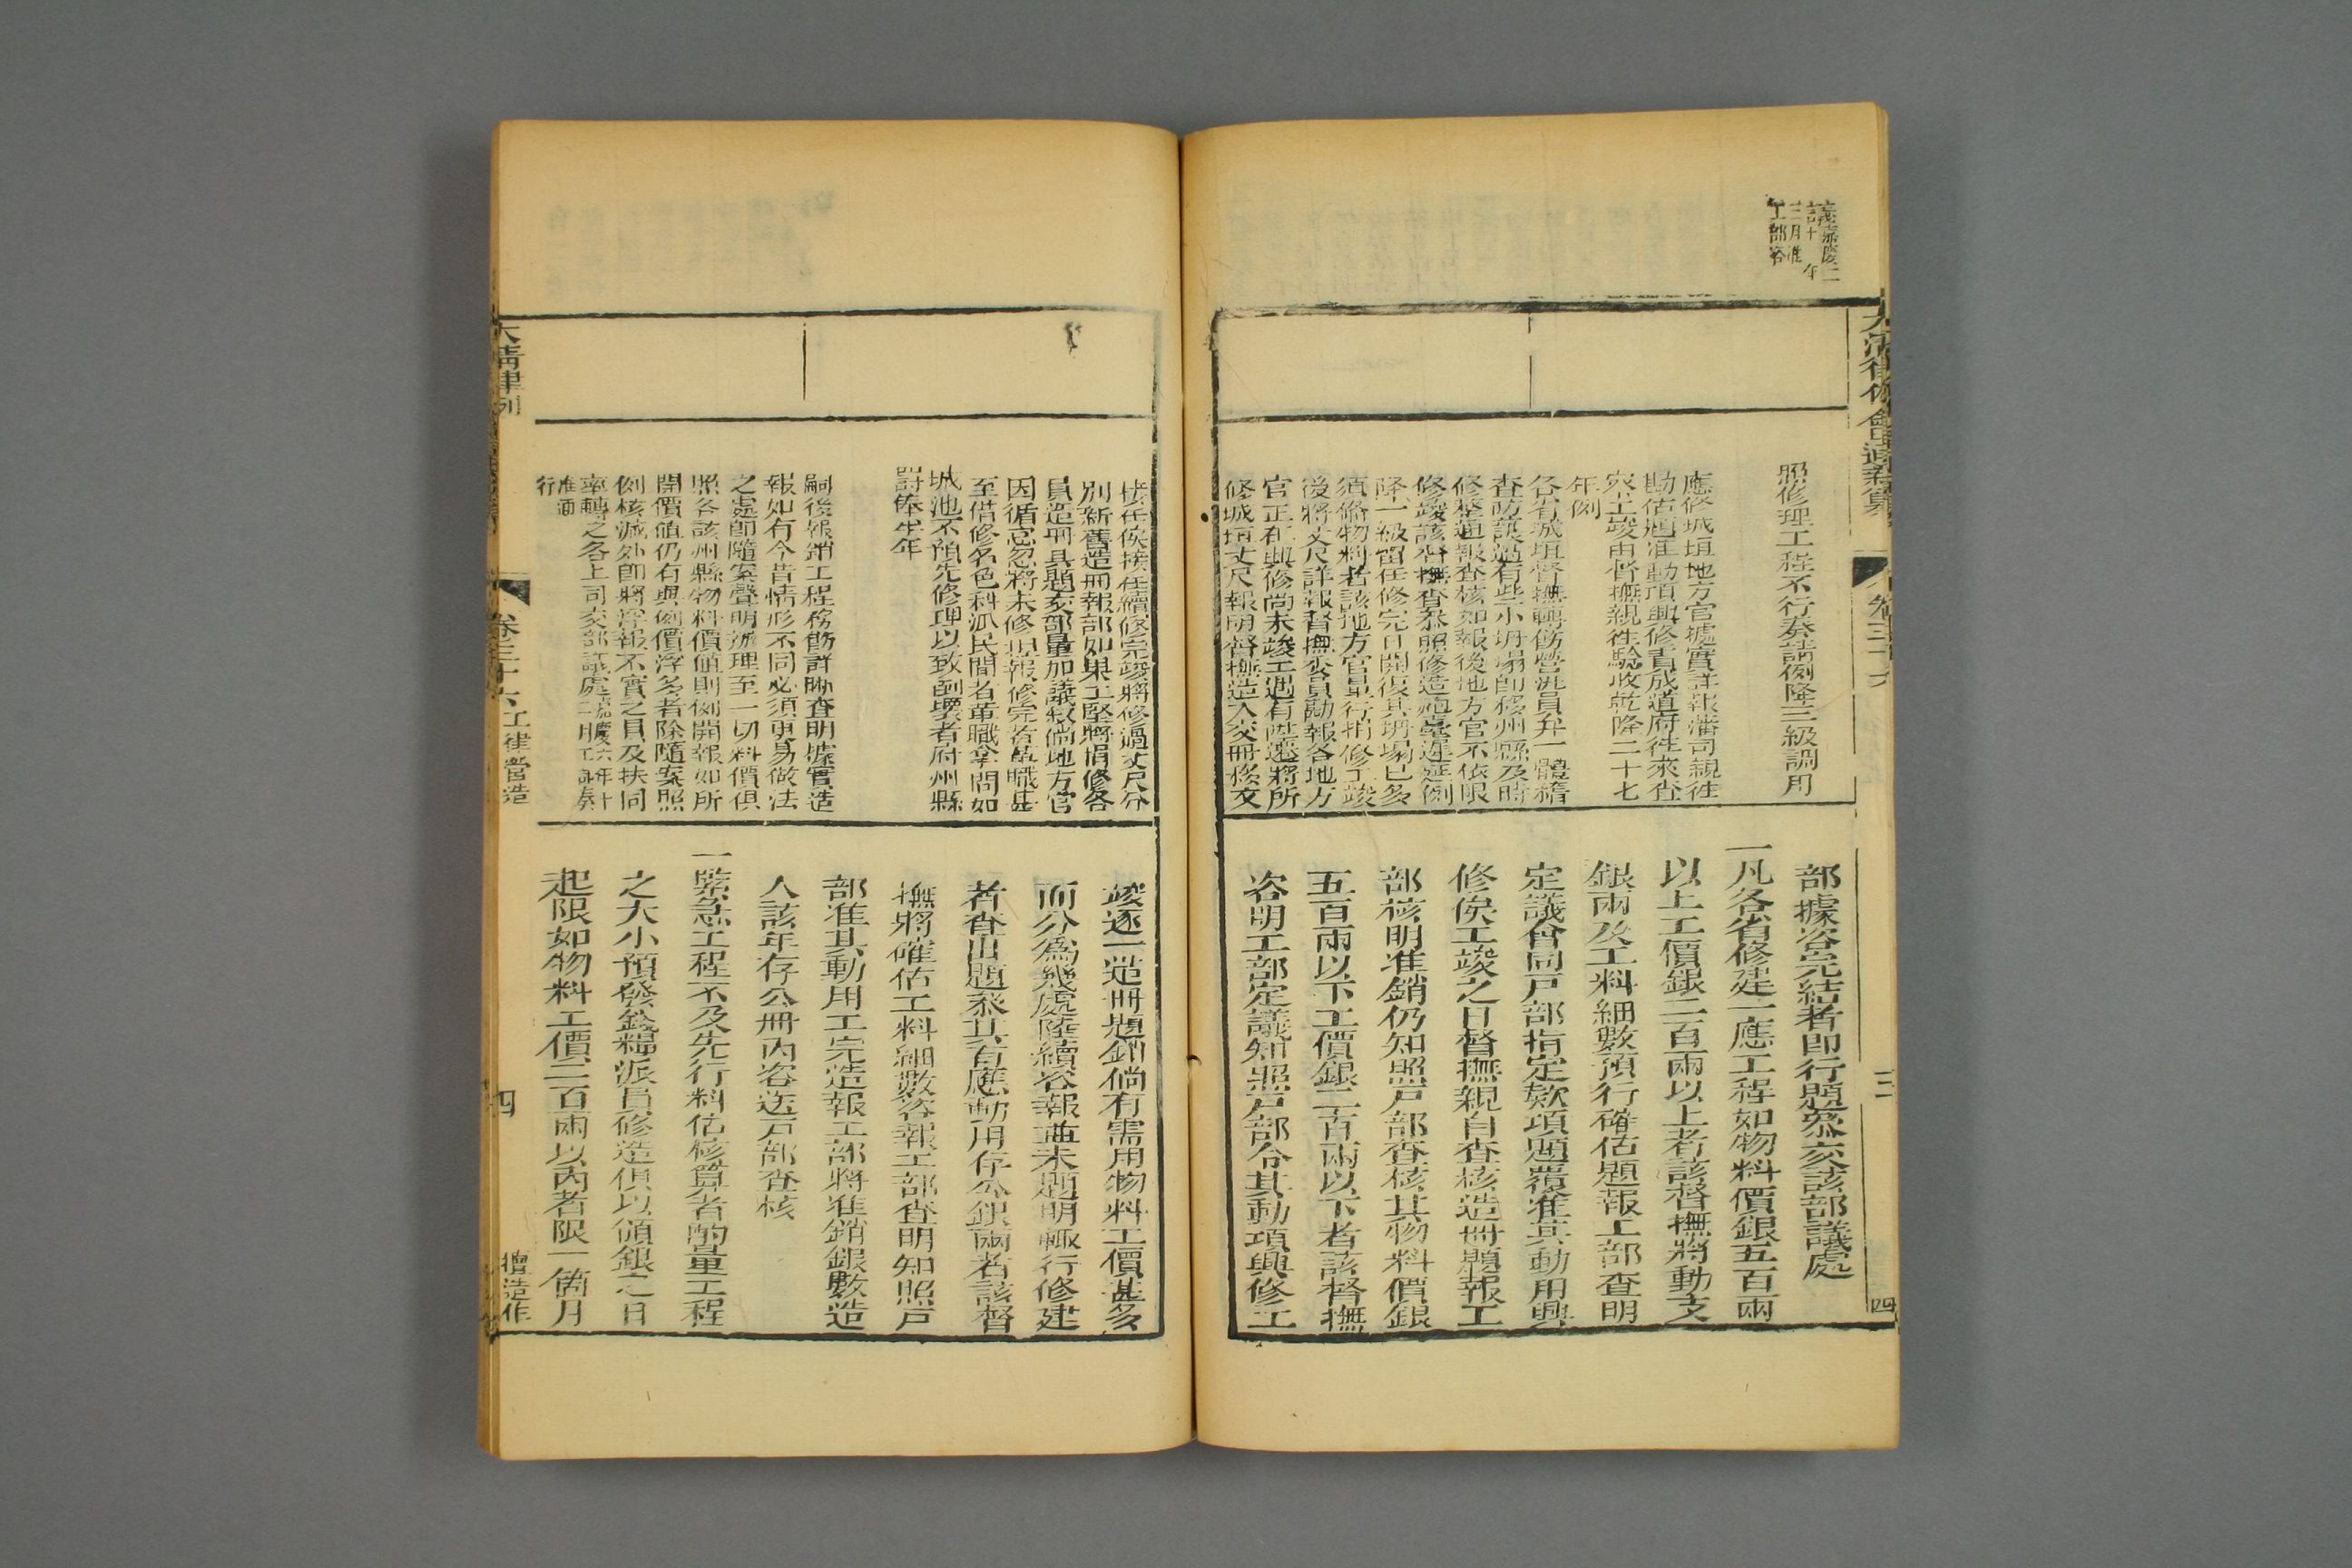 議嘉慶二
十年
三月准
工部咨
照修理工程不行奏請例降三級調用
應修城垣地方官據實詳報藩司親往
勘估題准動項興修責成道府往來查
察工竣由督撫親往驗收乾隆二十七
年例
各省城垣督撫轉飭營汛員弁一體稽
查防護遇有些小坍塌即移州縣及時
修整通報查核如報後地方官不依限
修竣該督撫查叅照修造遲延例
降一級留任修完日開復其坍塌已多
須備物料者該地方官最行捐修工竣
後將丈尺詳報督撫委員勘報各地方
官正在興修尚未竣工遇有陞遷將所
修城垣丈尺報明督撫造入交冊移交
部據咨完結者即行題叅交該部議處
一凡各省修建一應工程如物料價銀五百兩
以上工價銀二百兩以上者該督撫將動支
銀兩及工料細數預行確估題報工部查明
定議會同戶部指定欵項題覆准其動用興
修俟工竣之日督撫親自查核造冊題報工
部核明准銷仍知照戶部查核其物料價銀
五百兩以下工價銀二百兩以下者該督撫
咨明工部定議知照戶部令其動項興修工
接任俟接任續修完竣將修過丈尺分
別新舊造冊報部如果工堅將捐修各
員造冊具題交部量加議敘倘地方官
因循怠忽將未修揑報修完者革職甚
至借修名色科派民間者革職拿問如
城池不預先修理以致倒壞者府州縣
罰俸半年
嗣後報銷工程務飭詳晰查明據實造
報如有今昔情形不同必須更易做法
之處即隨案聲明辦理至一切料價俱
照各該州縣物料價值則例開報如所
開價值仍有與例價浮多者除隨案照
例核減外即將浮報不實之員及扶同
率轉之各上司交部議處嘉慶六年十二月工部奏
准通行
竣逐一造冊題銷倘有需用物料工價甚多
而分為幾處陸續咨報並未題明輙行修建
者查出題叅其有應動用存公銀兩者該督
撫將確估工料細數咨報工部查明知照戶
部准其動用工完造報工部將准銷銀數造
入該年存公冊內咨送戶部查核
一緊急工程不及先行料估核算者酌量工程
之大小預發錢糧派員修造俱以領銀之日
起限如物料工價二百兩以內者限一箇月
大清律例
卷三十六 工律營造
四
擅造作